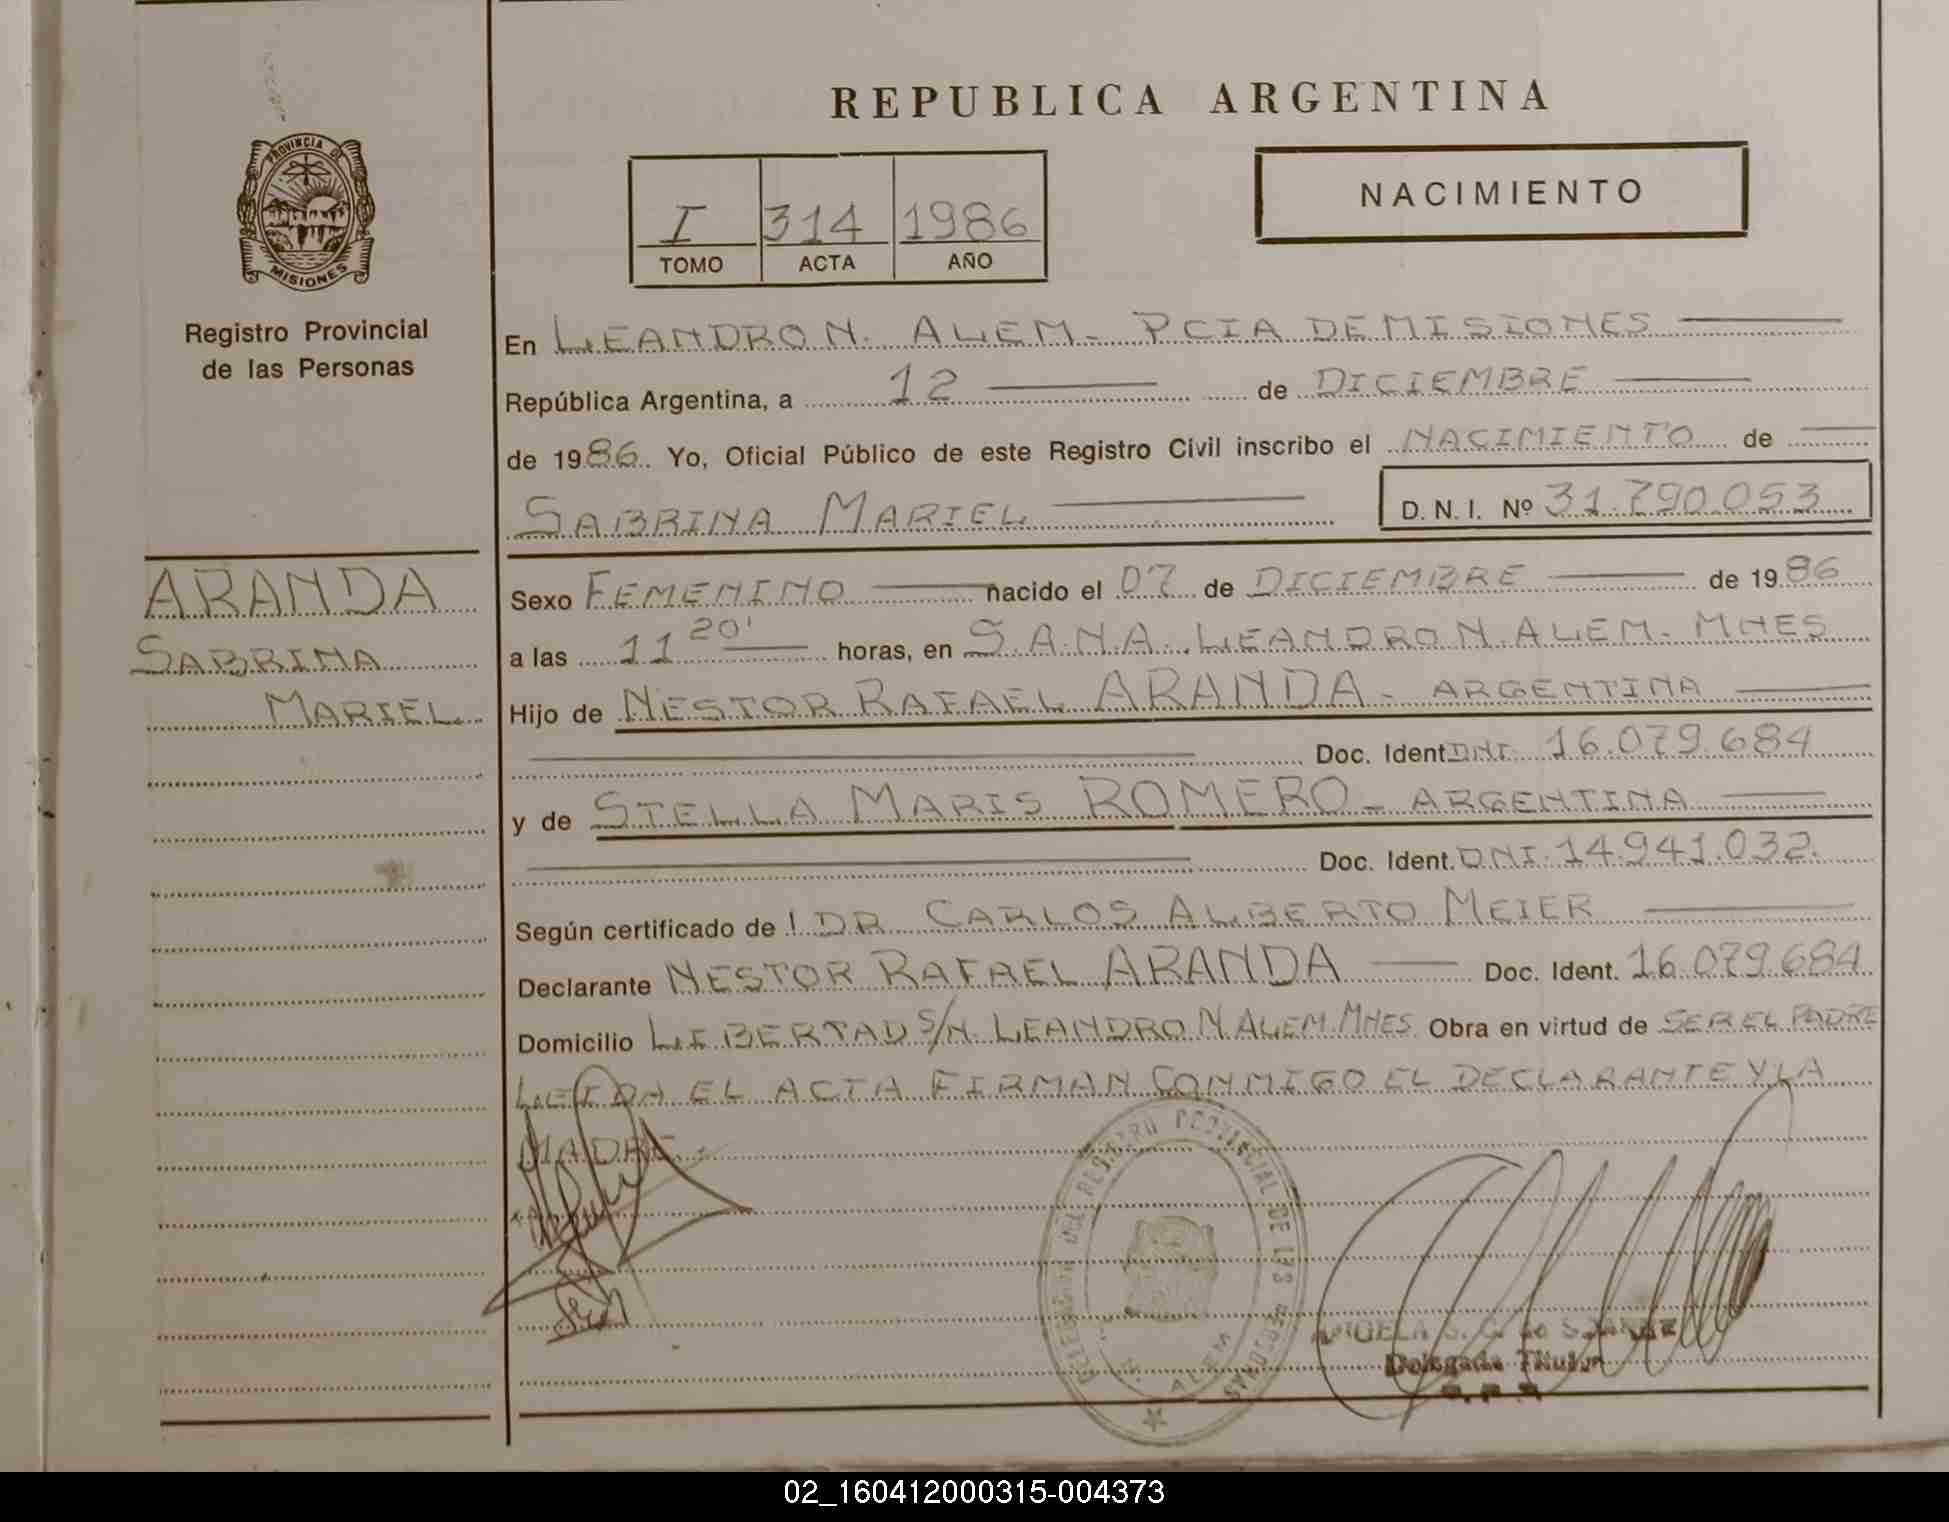 REPUBLICA ARGENTINA
PROVINCIA DE
MISIONES
Registro Provincial
de las Personas
I 314 1986
TOMO ACTA AÑO
NACIMIENTO
En LEANDRO N. ALEM - PCIA DE MISIONES
República Argentina, a 12 de DICIEMBRE
de 1986. Yo, Oficial Público de este Registro Civil inscribo el NACIMIENTO de
SABRINA MARIEL D. N. I. Nº 31.790.053
ARANDA
SABRINA
MARIEL
Sexo FEMENINO nacido el 07 de DICIEMBRE de 1986
a las 11 20' horas, en S.A.N.A. LEANDRO N. ALEM. MNES
Hijo de NESTOR RAFAEL ARANDA - ARGENTINA
Doc. Ident. DNI. 16.079.684
y de STELLA MARIS ROMERO - ARGENTINA
Doc. Ident. DNI. 14.941.032.
Según certificado de l DR CARLOS ALBERTO MEIER
Declarante NESTOR RAFAEL ARANDA Doc. Ident. 16.079.684
Domicilio LIBERTAD S/N. LEANDRO N. ALEM. MNES. Obra en virtud de SER EL PADRE
LEIDA EL ACTA FIRMAN CONMIGO EL DECLARANTE Y LA
MADRE.-
REGISTRO PROVINCIAL DE LAS PERSONAS
N. ALEM
Delegada Titular
02_160412000315-004373